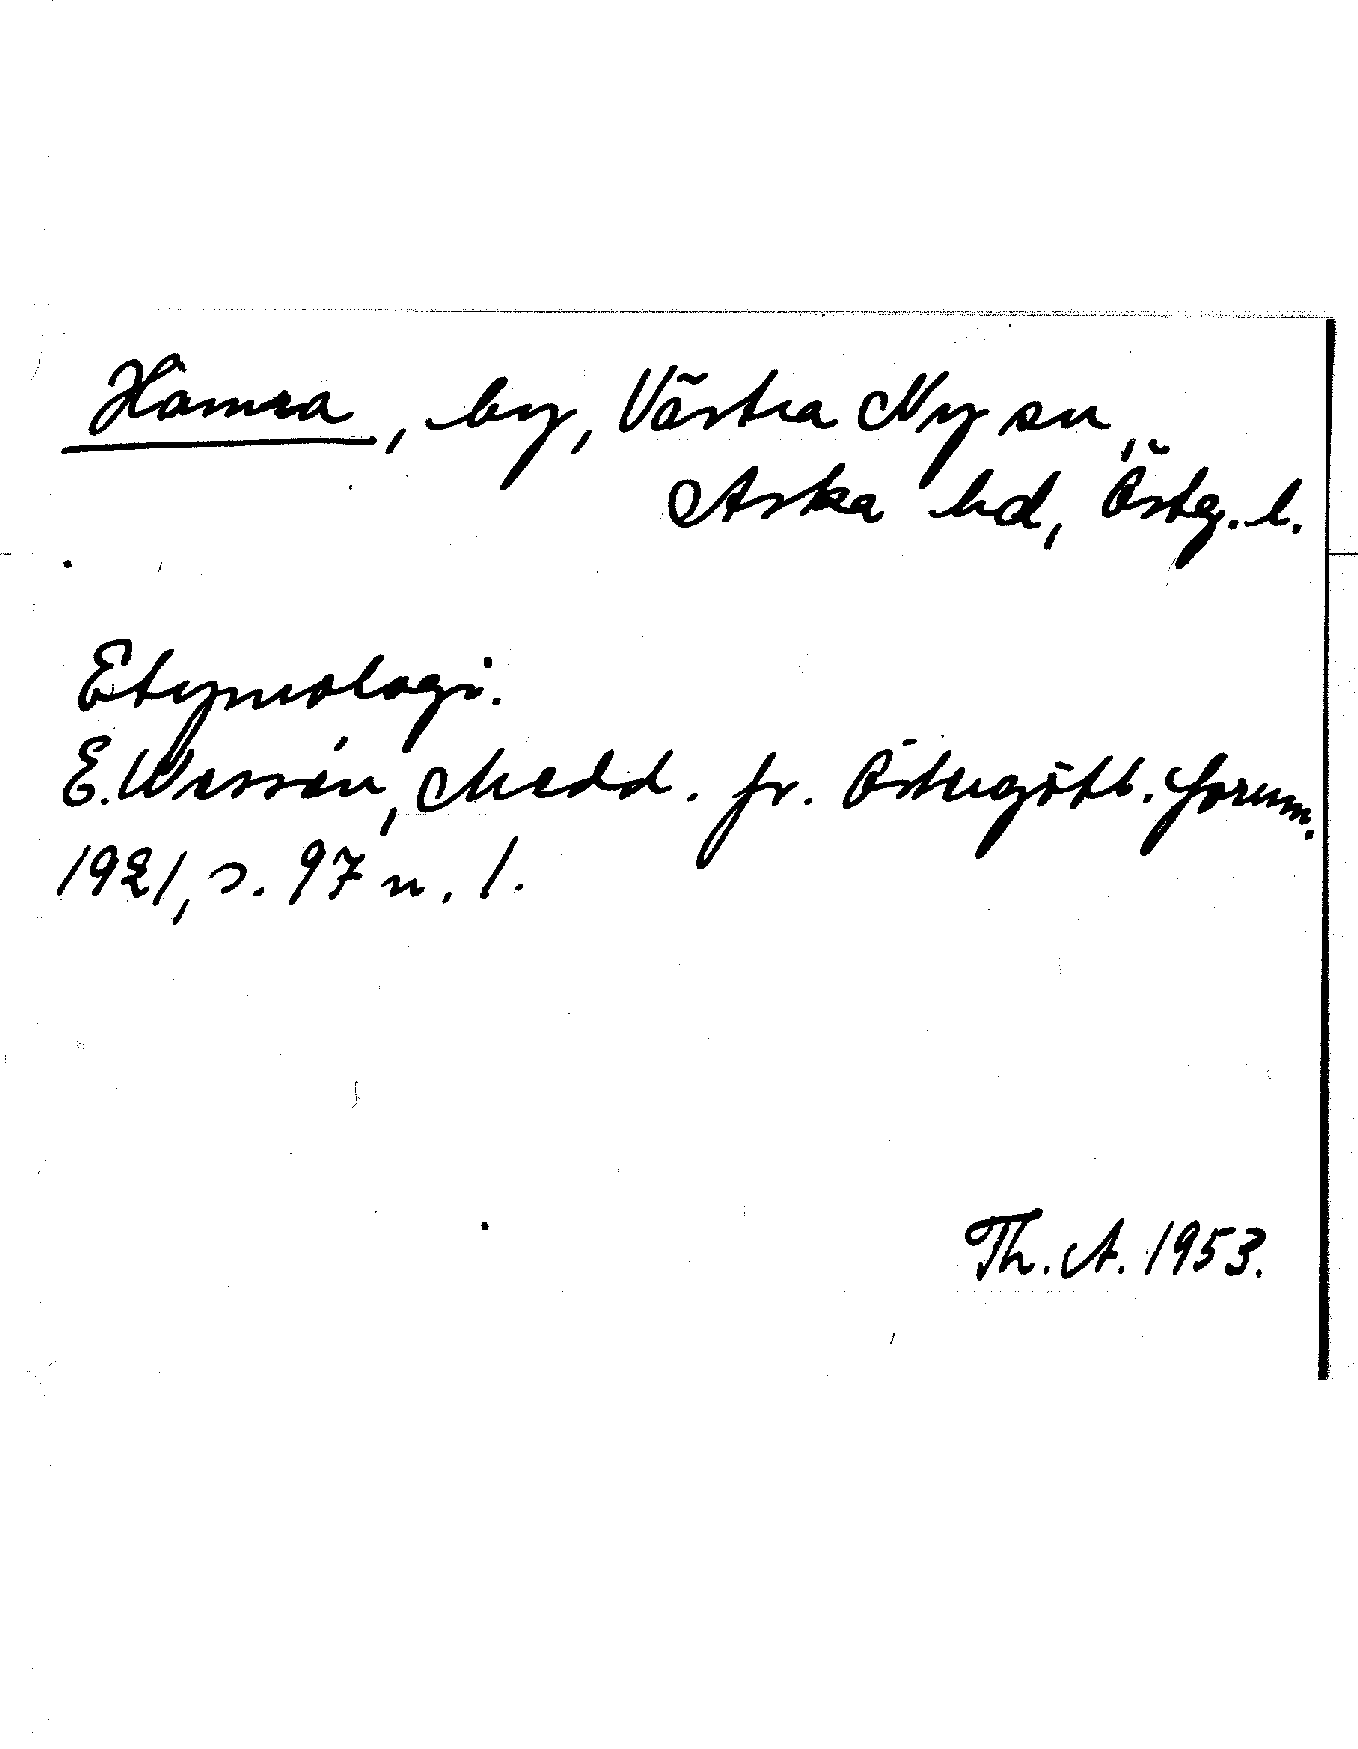 Hamra, by, Västra Ny sn,
Aska hd, Östg. l.
Etymologi.
E. Wessén, Medd. fr. Östergötl. fornm.
1921, s. 97 n. 1.
Th. A. 1953.